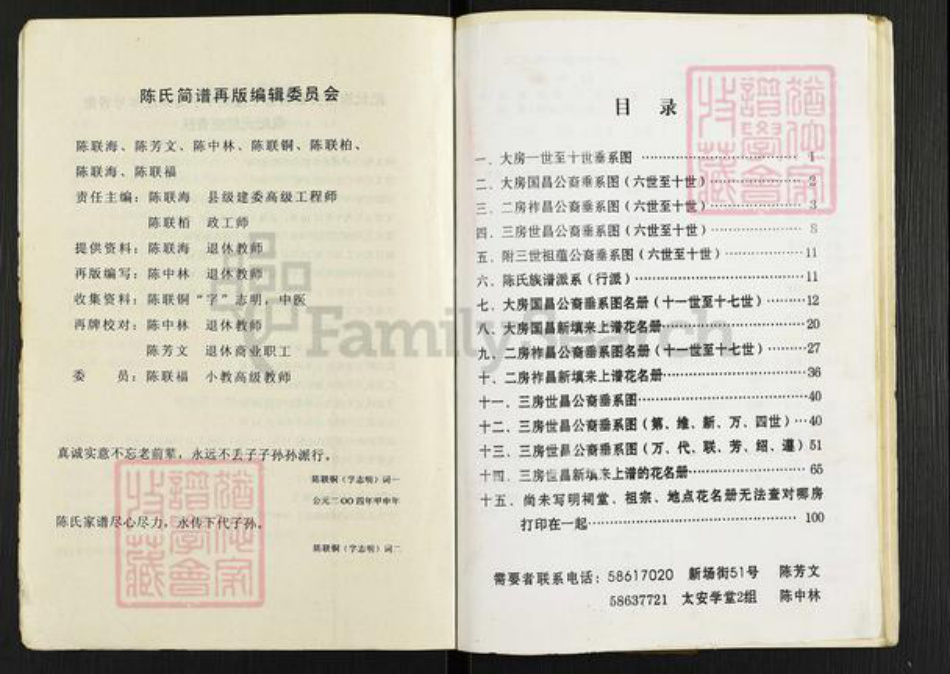 陈氏简谱再版编辑委员会
陈联海、陈芳文、陈中林、陈联铜、陈联柏、
陈联海、陈联福
责任主编：陈联海 县级建委高级工程师
陈联栢 政工师
提供资料：陈联海 退休教师
再版编写：陈中林 退休教师
收集资料：陈联铜“字”志明，中医
再牌校对：陈中林 退休教师
陈芳文 退休商业职工
委 员：陈联福 小教高级教师
真诚实意不忘老前辈，永远不丢子子孙孙派行。
陈联铜（字志明）词一
公元二〇〇四年甲申年
陈氏家谱尽心尽力，永传下代子孙。
陈联铜（字志明）词二
目 录
一、大房一世至十世垂系图 ……………………1
二、大房国昌公裔垂系图（六世至十世）……………2
三、二房祚昌公裔垂系图（六世至十世）……………3
四、三房世昌公裔垂系图（六世至十世）……………8
五、附三世祖蕴公裔垂系图（六世至十世）…………11
六、陈氏族谱派系（行派）……………………11
七、大房国昌公裔垂系图名册（十一世至十七世）………12
八、大房国昌新填来上谱花名册……………………20
九、二房祚昌公裔垂系图名册（十一世至十七世）………27
十、二房祚昌新填来上谱花名册……………………36
十一、三房世昌公裔垂系图……………………40
十二、三房世昌公裔垂系图（第、维、新、万、四世）…40
十三、三房世昌公裔垂系图（万、代、联、芳、绍、遵）51
十四、三房世昌新填来上谱的花名册……………………65
十五、尚未写明祠堂、祖宗、地点花名册无法查对哪房
打印在一起……………………100
需要者联系电话：58617020 新场街51号 陈芳文
58637721 太安学堂2组 陈中林
FamilySearch